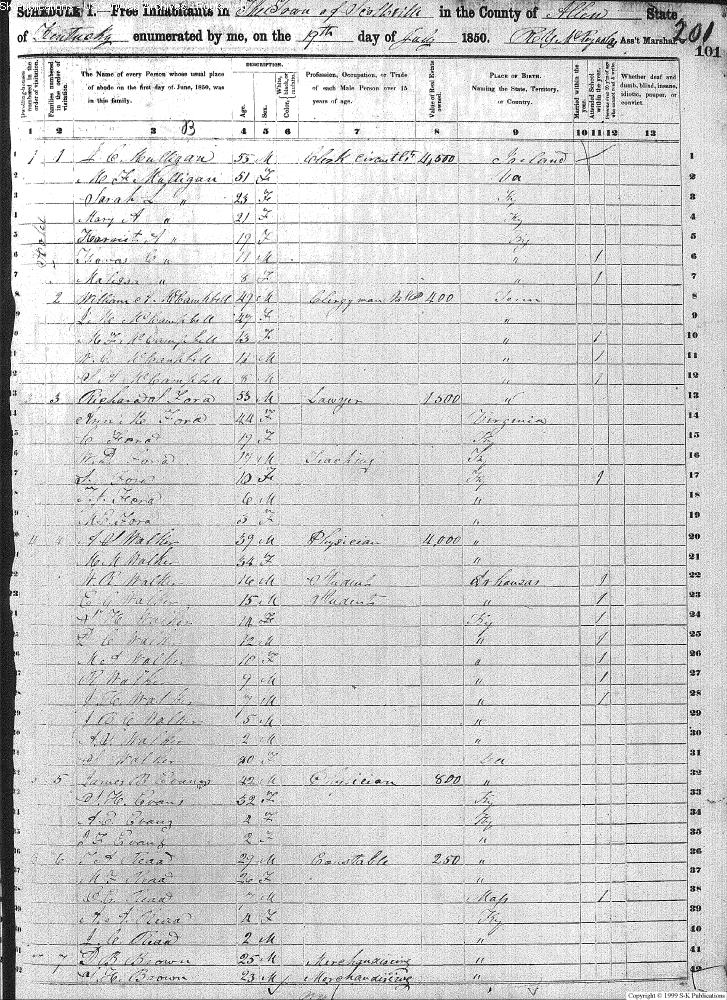 SCHEDULE I. Free Inhabitants in The Town of Scottsville in the County of Allen State
of Kentucky enumerated by me, on the 19th day of July 1850. Ass't Marshal 201
101
DESCRIPTION.
Dwelling-houses numbered in the order of visitation.
Families numbered in the order of visitation.
The Name of every Person whose usual place of abode on the first day of June, 1850, was in this family.
Age.
Sex.
Color, White, black, or mulatto.
Profession, Occupation, or Trade of each Male Person over 15 years of age.
Value of Real Estate owned.
PLACE OF BIRTH. Naming the State, Territory, or Country.
Married within the year.
Attended School within the year.
Whether deaf and dumb, blind, insane, idiotic, pauper, or convict.
1 2 3 4 5 6 7 8 9 10 11 12 13
B
1 1 1 J C Mulligan 55 M Clerk Circuit Ct 4,500 Ireland 1
2 M F Mulligan 51 F Va 2
3 Sarah L " 23 F Ky 3
4 Mary A " 21 F Ky 4
5 Harriet A " 19 F Ky 5
6 Thomas C " 11 M " 1 6
7 " 8 F " 1 7
8 2 William McCampbell 49 M Clergyman 400 Tenn 8
9 McCampbell 47 F " 9
10 M F McCampbell 13 F " 1 10
11 W C McCampbell 11 M " 1 11
12 McCampbell 8 M " 1 12
13 3 Richard S Fora 53 M Lawyer 1500 " 13
14 Ann M Fora 44 F Virginia 14
15 C Fora 19 F Ky 15
16 Fora 17 M Teaching Ky 16
17 Fora 10 F Ky 1 17
Fora 6 M " 18
M Fora 3 F " 19
20 4 4 A S Walker 39 M Physician 4,000 " 20
21 M M Walker 34 F " 21
W R Walker 16 M Student Arkansas 1 22
E G Walker 15 M Student " 1 23
H Walker 14 F Ky 1 24
C Walker 12 M " 1 25
M A Walker 10 F " 1 26
R Walker 9 M " 1 27
J H Walker 7 M " 1 28
J C C Walker 5 M " 29
A Walker 2 M " 30
Walker F 31
5 5 James B Evans 42 M Physician 800 " 32
H Evans 32 F Ky 33
A E Evans 2 F Ky 34
J F Evans 2 F " 35
6 6 T A Read 29 M Constable 250 " 36
M F Read 26 F " 37
Read 7 M Mass 1 38
A A Read 4 F Ky 39
J C Read 2 M " 40
7 7 D B Brown 25 M Merchandising " 41
H Brown 23 M Merchandising " 42
Copyright © 1999 S-K Publications